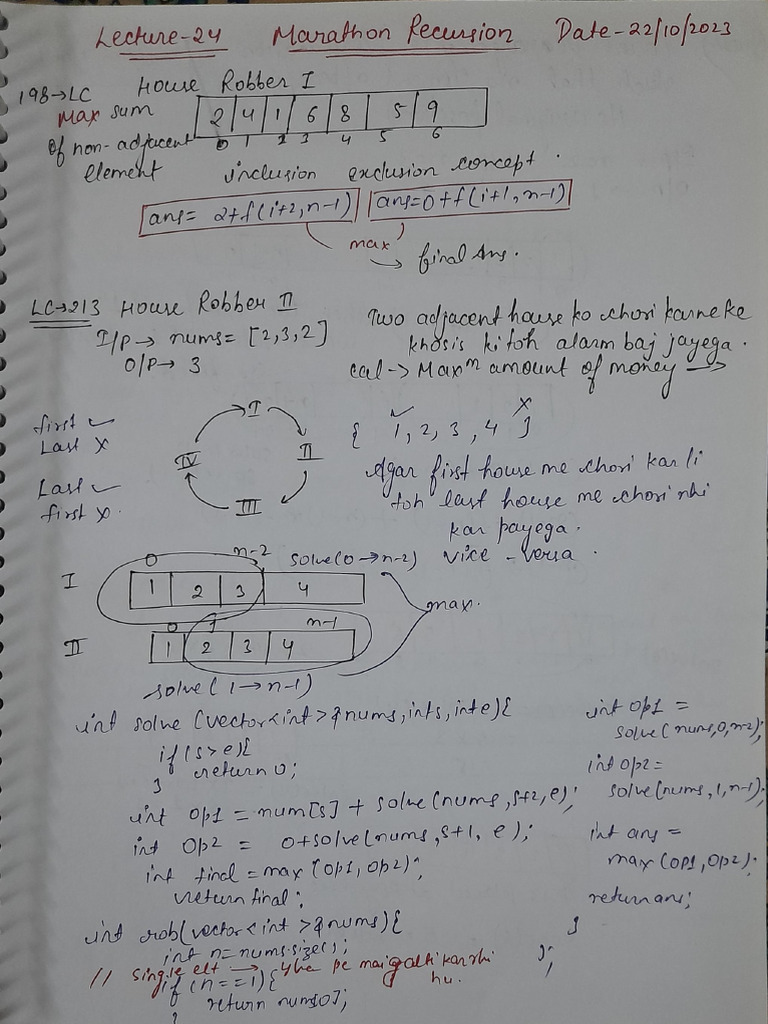 Lecture-24 Marathon Recursion Date-22/10/2023
198→LC House Robber I
Max sum
of non-adjacent
element
2 4 1 6 8 5 9
0 1 2 3 4 5 6
inclusion exclusion concept.
ans= 2+f(i+2,n-1) ans=0+f(i+1,n-1)
max
→ final Ans.
LC→213 House Robber II
I/P → nums= [2,3,2]
O/P→ 3
Two adjacent house ko chori karne ke
khosis ki toh alarm baj jayega.
cal -> Maxᵐ amount of money →
first ✓
Last ✗
Last ✓
first ✗.
I
II
III
IV
✓ ✗
{ 1, 2, 3, 4 }
Agar first house me chori kar li
toh last house me chori nhi
kar payega.
vice-versa.
0 n-2 solve(0→n-2)
I 1 2 3 4
max.
0 1 n-1
II 1 2 3 4
solve(1→n-1)
int solve (vector<int>&nums, int s, int e){
if(s>e){
return 0;
}
int op1 = num[s] + solve(nums, s+2, e);
int op2 = 0+solve(nums, s+1, e);
int final = max(op1, op2);
return final;
int rob(vector<int>&nums){
int n=nums.size();
// single elt → yha pe mai galti kar rhi
hu.
if (n==1){
return nums[0];
}
int op1 =
solve(nums,0,n-2);
int op2=
solve(nums,1,n-1);
int ans =
max(op1,op2);
return ans;
}
};